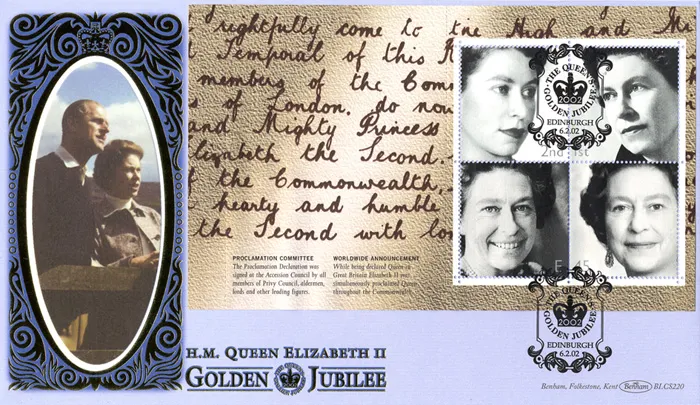 rightfully come to the High and Mi
Temporal of this R
members of the Com
s of London, do now
and Mighty Princess
lizabeth the Second.
the Commonwealth,
hearty and humble
the Second with lon
PROCLAMATION COMMITTEE
The Proclamation Declaration was
signed at the Accession Council by all
members of Privy Council, aldermen,
lords and other leading figures.
WORLDWIDE ANNOUNCEMENT
While being declared Queen in
Great Britain Elizabeth II was
simultaneously proclaimed Queen
throughout the Commonwealth.
2nd
1st
E
45
THE QUEEN'S
GOLDEN JUBILEE
2002
EDINBURGH
6.2.02
THE QUEEN'S
GOLDEN JUBILEE
2002
EDINBURGH
6.2.02
H.M. QUEEN ELIZABETH II
GOLDEN JUBILEE
Benham, Folkestone, Kent Benham BLCS220